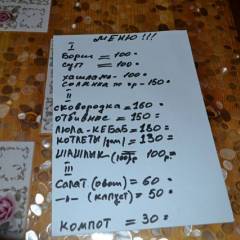 МЕНЮ !!!
I
Борщ = 100
СУП = 100
ХАШЛАМА - 100
СОЛЯНКА по ор - 150
II
СКОВОРОДКА = 160
ОТБИВНОЕ = 150
ЛЮЛЯ-КЕБАБ = 130
КОТЛЕТЫ = 130
ШАШЛЫК = (100гр) 100р.
III
САЛАТ. (овощ) = 60
-»- (капуст) = 50
КОМПОТ = 30